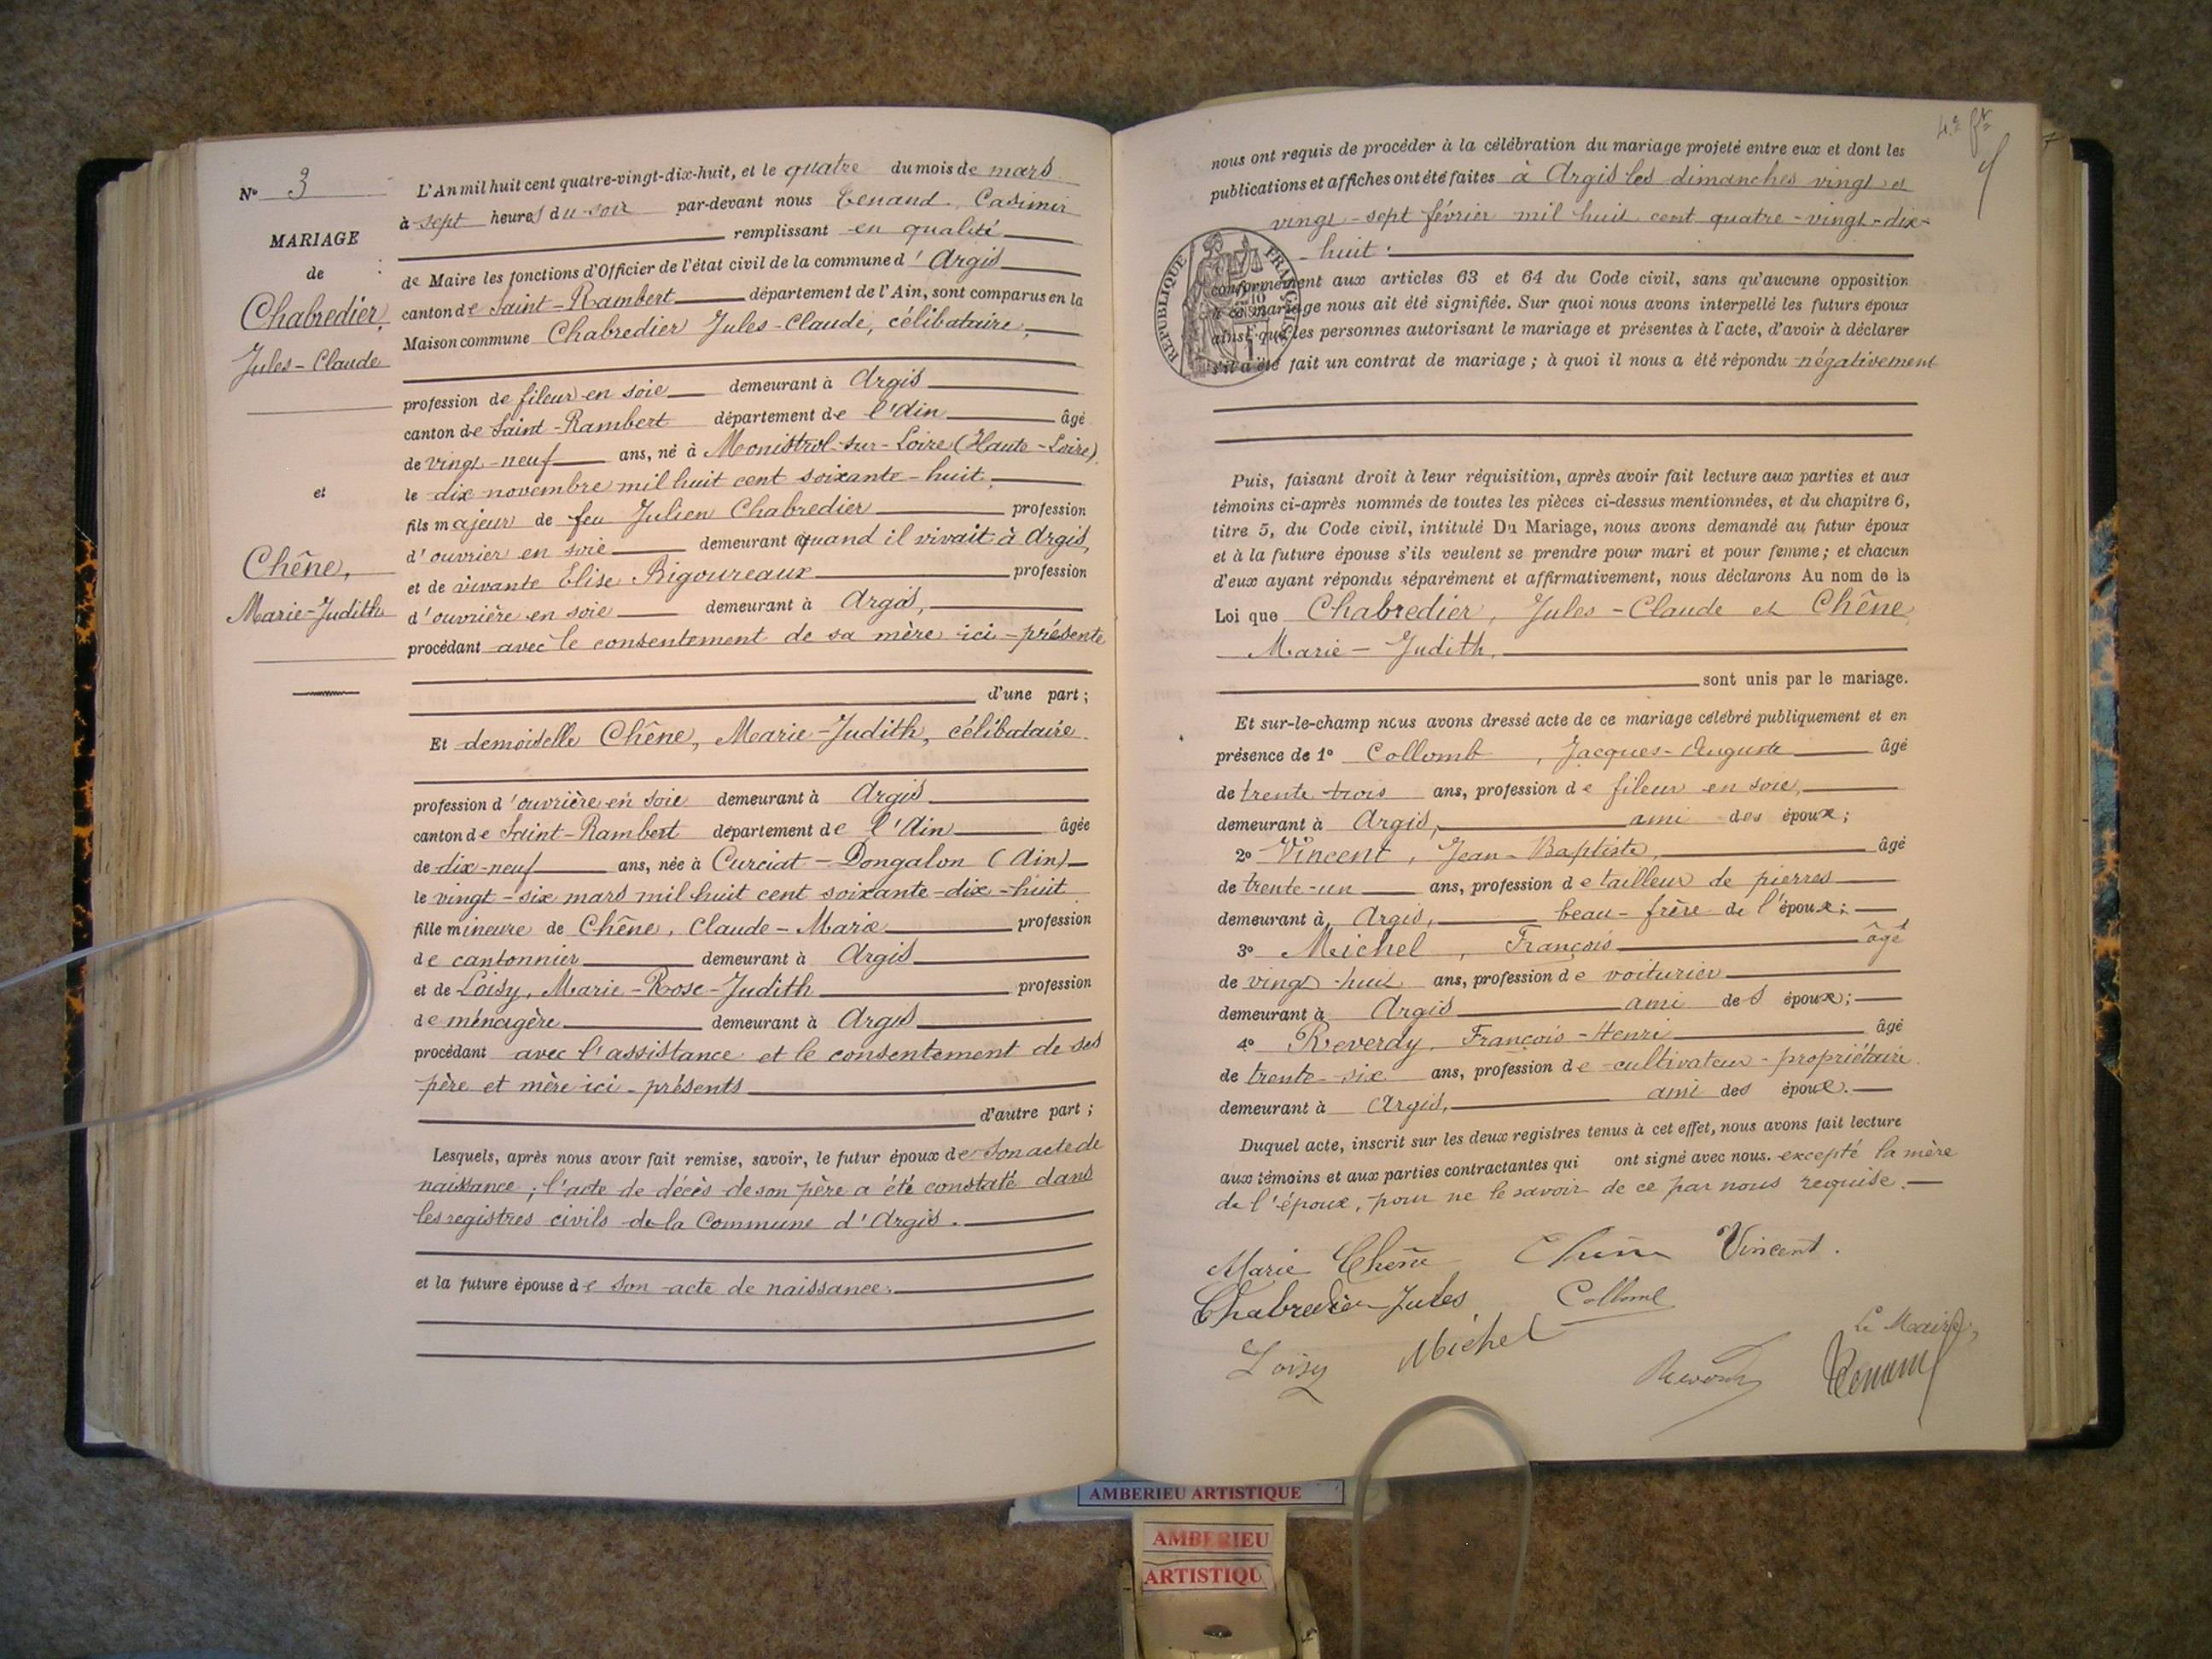 N° 3
MARIAGE
de
Chabredier,
Jules-Claude
et
Chêne,
Marie-Judith
L'An mil huit cent quatre-vingt-dix-huit, et le quatre du mois de mars
à sept heures du soir par-devant nous Tenand Casimir
remplissant en qualité
de Maire les fonctions d'Officier de l'état civil de la commune d'Argis
canton de Saint-Rambert département de l'Ain, sont comparus en la
Maison commune Chabredier Jules-Claude, célibataire,
profession de fileur en soie demeurant à Argis
canton de Saint-Rambert département de l'Ain âgé
de vingt-neuf ans, né à Monistrol-sur-Loire (Haute-Loire)
le dix novembre mil huit cent soixante-huit,
fils majeur de feu Julien Chabredier profession
d'ouvrier en soie demeurant quand il vivait à Argis,
et de vivante Elise Bigoureaux profession
d'ouvrière en soie demeurant à Argis,
procédant avec le consentement de sa mère ici-présente
d'une part;
Et demoiselle Chêne, Marie-Judith, célibataire.
profession d'ouvrière en soie demeurant à Argis
canton de Saint-Rambert département de l'Ain âgée
de dix-neuf ans, née à Curciat-Dongalon (Ain)
le vingt-six mars mil huit cent soixante-dix-huit
fille mineure de Chêne, Claude-Marie profession
de cantonnier demeurant à Argis
et de Loisy, Marie-Rose-Judith profession
de ménagère demeurant à Argis
procédant avec l'assistance et le consentement de ses
père et mère ici-présents
d'autre part;
Lesquels, après nous avoir fait remise, savoir, le futur époux de son acte de
naissance; l'acte de décès de son père a été constaté dans
les registres civils de la Commune d'Argis.
et la future épouse de son acte de naissance.
4e ft
nous ont requis de procéder à la célébration du mariage projeté entre eux et dont les
publications et affiches ont été faites à Argis les dimanches vingt et
vingt-sept février mil huit cent quatre-vingt-dix-
huit.
RÉPUBLIQUE FRANÇAISE
conformément aux articles 63 et 64 du Code civil, sans qu'aucune opposition
à ce mariage nous ait été signifiée. Sur quoi nous avons interpellé les futurs époux
ainsi que les personnes autorisant le mariage et présentes à l'acte, d'avoir à déclarer
s'il a été fait un contrat de mariage; à quoi il nous a été répondu négativement
Puis, faisant droit à leur réquisition, après avoir fait lecture aux parties et aux
témoins ci-après nommés de toutes les pièces ci-dessus mentionnées, et du chapitre 6,
titre 5, du Code civil, intitulé Du Mariage, nous avons demandé au futur époux
et à la future épouse s'ils veulent se prendre pour mari et pour femme; et chacun
d'eux ayant répondu séparément et affirmativement, nous déclarons Au nom de la
Loi que Chabredier, Jules-Claude et Chêne
Marie-Judith,
sont unis par le mariage.
Et sur-le-champ nous avons dressé acte de ce mariage célébré publiquement et en
présence de 1° Collomb, Jacques-Auguste âgé
de trente-trois ans, profession de fileur en soie,
demeurant à Argis, ami des époux;
2° Vincent, Jean-Baptiste, âgé
de trente-un ans, profession de tailleur de pierres
demeurant à Argis, beau-frère de l'époux;
3° Michel, François âgé
de vingt-huit ans, profession de voiturier
demeurant à Argis ami des époux;
4° Reverdy, François-Henri âgé
de trente-six ans, profession de cultivateur-propriétaire
demeurant à Argis, ami des époux.
Duquel acte, inscrit sur les deux registres tenus à cet effet, nous avons fait lecture
aux témoins et aux parties contractantes qui ont signé avec nous. excepté la mère
de l'époux, pour ne le savoir de ce par nous requise.
Marie Chêne Chêne Vincent.
Chabredier Jules Collomb
Loisy Michel Reverdy
Le Maire,
Tenand
AMBERIEU ARTISTIQUE
AMBERIEU
ARTISTIQU